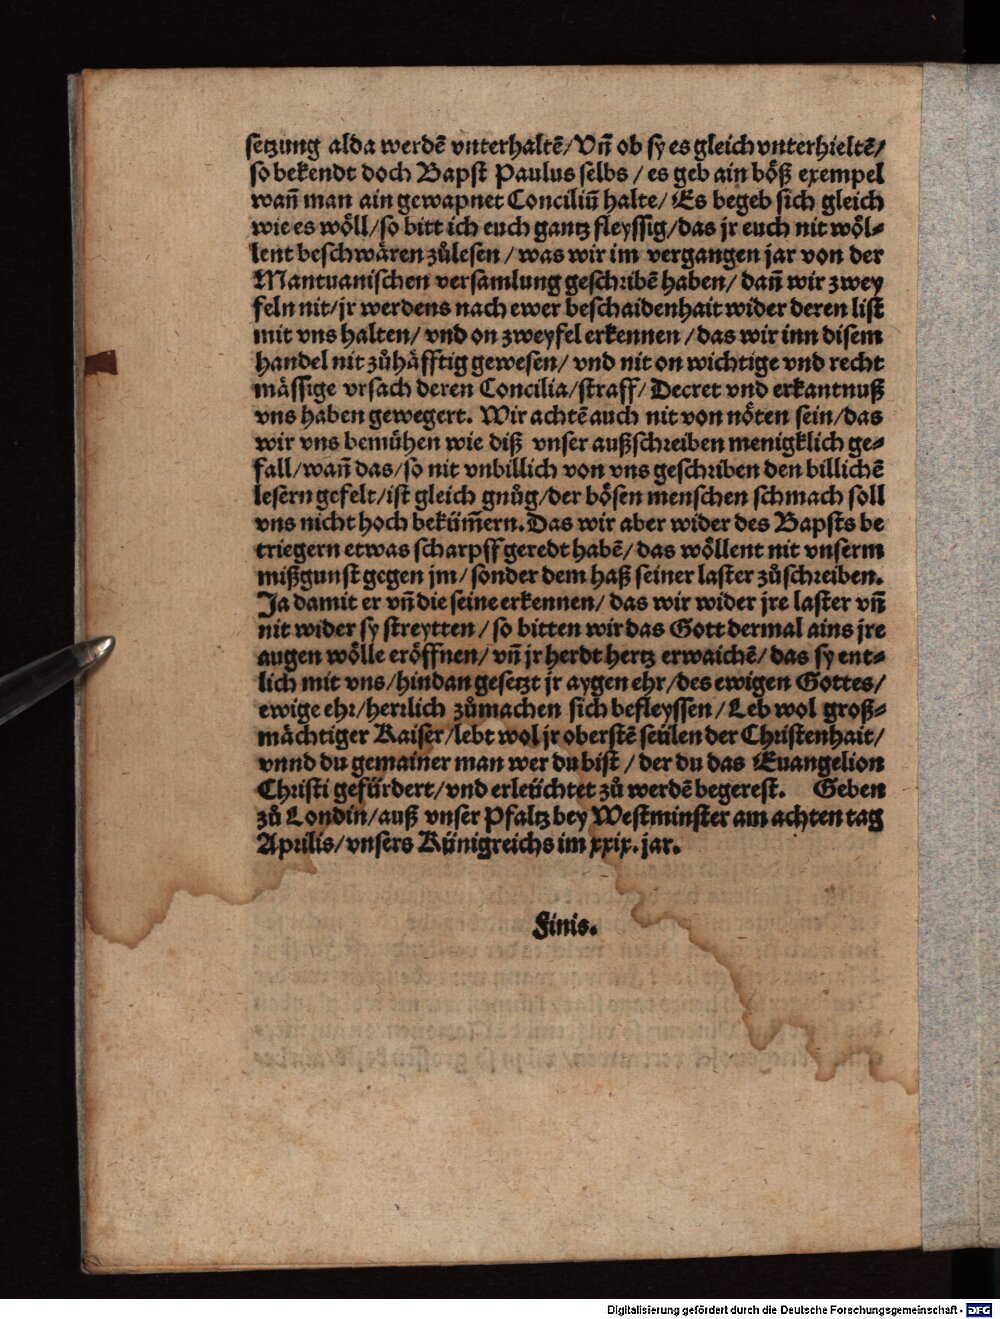 setzung alda werdē vnterhaltē/Vn̄ ob sy es gleich vnterhieltē/
so bekendt doch Bapst Paulus selbs / es geb ain böß exempel
wan̄ man ain gewapnet Conciliū halte/ Es begeb sich gleich
wie es wöll/so bitt ich euch gantz fleyssig/das jr euch nit wöl⸗
lent beschwären zůlesen / was wir im vergangen jar von der
Mantuanischen versamlung geschribē haben/ dan̄ wir zwey
feln nit/jr werdens nach ewer beschaidenhait wider deren list
mit vns halten/ vnd on zweyfel erkennen /das wir inn disem
handel nit zůhäfftig gewesen/ vnd nit on wichtige vnd recht
mässige vrsach deren Concilia/straff/ Decret vnd erkantnuß
vns haben gewegert. Wir achtē auch nit von nöten sein/das
wir vns bemühen wie diß vnser außschreiben menigklich ge⸗
fall/wan̄ das/so nit vnbillich von vns geschriben den billichē
lesern gefelt/ist gleich gnůg/der bösen menschen schmach soll
vns nicht hoch beküm̄ern. Das wir aber wider des Bapsts be
triegern etwas scharpff geredt habē/das wöllent nit vnserm
mißgunst gegen jm/sonder dem haß seiner laster zůschreiben.
Ja damit er vn̄ die seine erkennen/das wir wider jre laster vn̄
nit wider sy streytten /so bitten wir das Gott dermal ains jre
augen wölle eröffnen/vn̄ jr herdt hertz erwaichē/das sy ent⸗
lich mit vns/hindan gesetzt jr aygen ehr/des ewigen Gottes/
ewige ehr/herrlich zůmachen sich befleyssen/Leb wol groß⸗
mächtiger Kaiser/lebt wol jr oberstē seülen der Christenhait/
vnnd du gemainer man wer du bist /der du das Euangelion
Christi gefürdert/vnd erleüchtet zů werdē begerest. Geben
zů Londin/auß vnser Pfaltz bey Westminster am achten tag
Aprilis/vnsers Künigreichs im xxix. jar.
Finis.
Digitalisierung gefördert durch die Deutsche Forschungsgemeinschaft - DFG